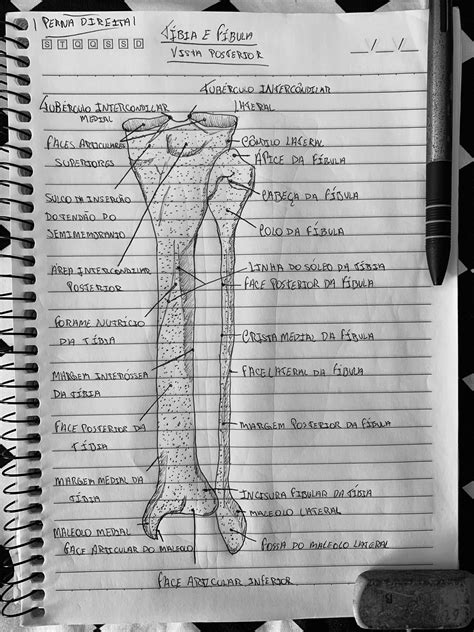 PERNA DIREITA
STQQSSD
TÍBIA E FÍBULA
VISTA POSTERIOR
__/__/__
TUBÉRCULO INTERCONDILAR
LATERAL
TUBÉRCULO INTERCONDILAR
MEDIAL
FACES ARTICULARES
SUPERIORES
CÔNDILO LATERAL
ÁPICE DA FÍBULA
SULCO DA INSERÇÃO
DO TENDÃO DO
SEMIMEMBRANO
CABEÇA DA FÍBULA
COLO DA FÍBULA
ÁREA INTERCONDILAR
POSTERIOR
LINHA DO SÓLEO DA TÍBIA
FACE POSTERIOR DA FÍBULA
FORAME NUTRÍCIO
DA TÍBIA
CRISTA MEDIAL DA FÍBULA
MARGEM INTERÓSSEA
DA TÍBIA
FACE LATERAL DA FÍBULA
FACE POSTERIOR DA
TÍBIA
MARGEM POSTERIOR DA FÍBULA
MARGEM MEDIAL DA
TÍBIA
INCISURA FIBULAR DA TÍBIA
MALEOLO LATERAL
MALEOLO MEDIAL
FACE ARTICULAR DO MALEOLO
FOSSA DO MALEOLO LATERAL
FACE ARTICULAR INFERIOR